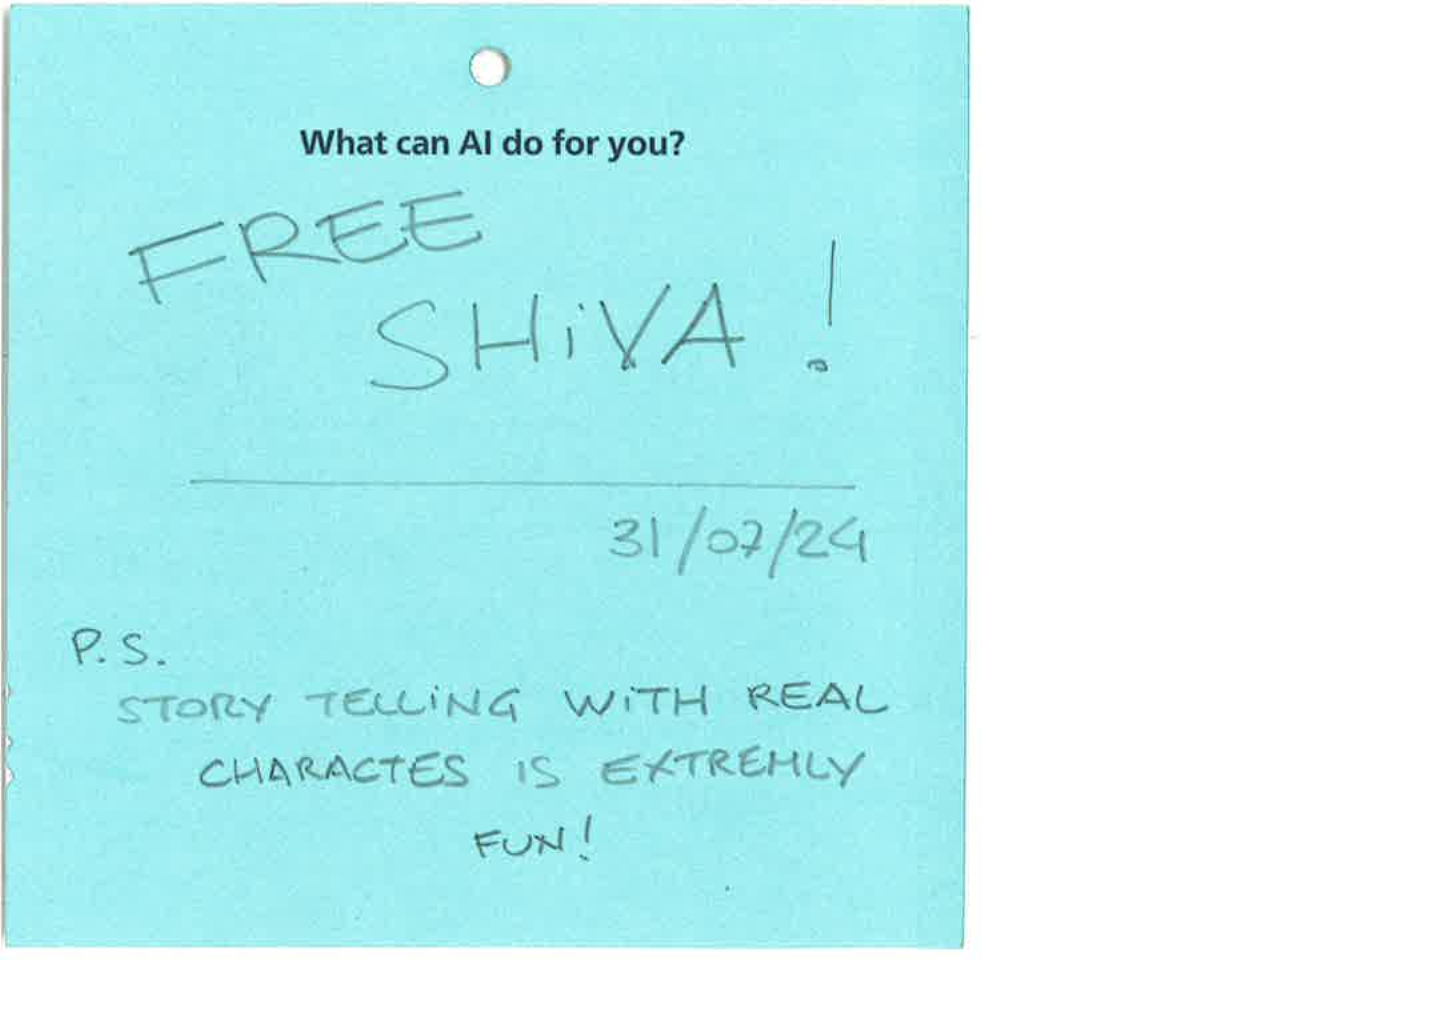 What can AI do for you?
FREE
SHiVA!
31/07/24
P.S.
STORY TELLiNG WiTH REAL
CHARACTES IS EXTREMLY
FUN!